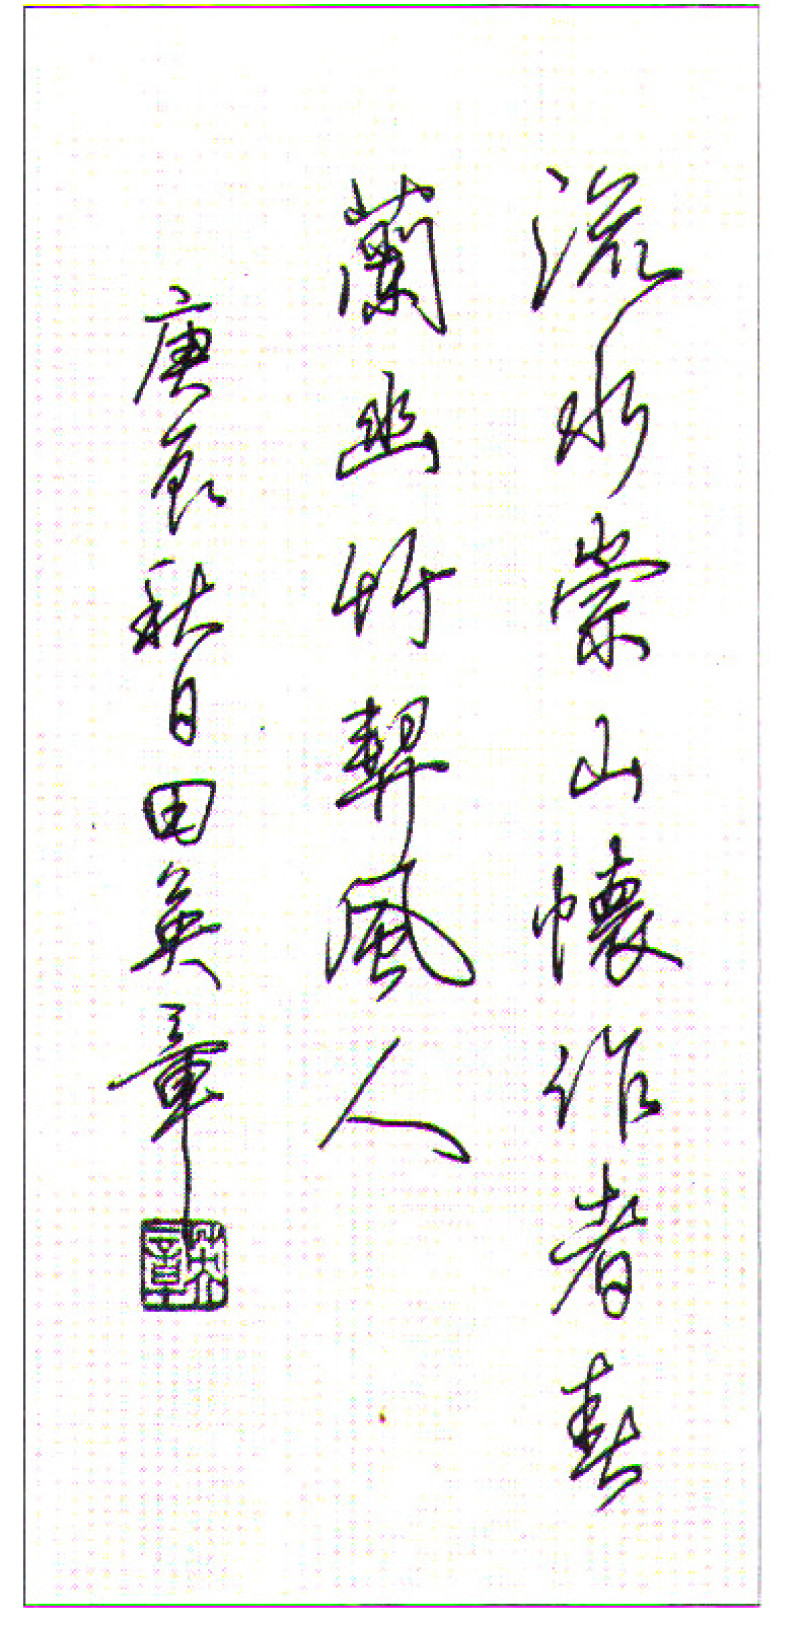 流水崇山懷作者春
蘭幽竹契風人
庚辰秋日田英章
英章